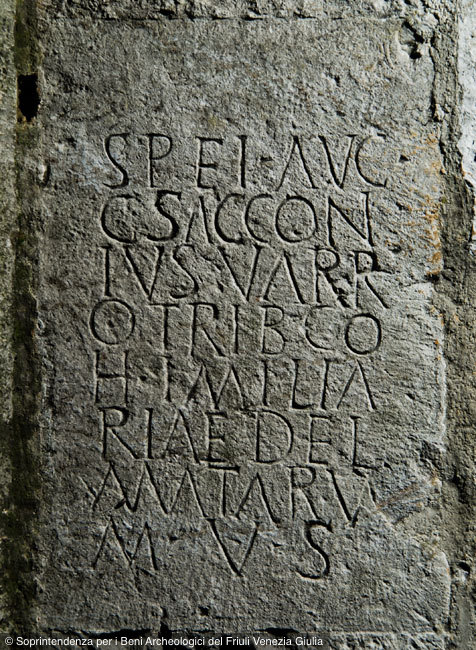 SPEI·AVG
C·SACCON
IVS·VARR
O TRIB CO
H·I·MILIA
RIAE DEL
MATARV
M·V·S
© Soprintendenza per i Beni Archeologici del Friuli Venezia Giulia